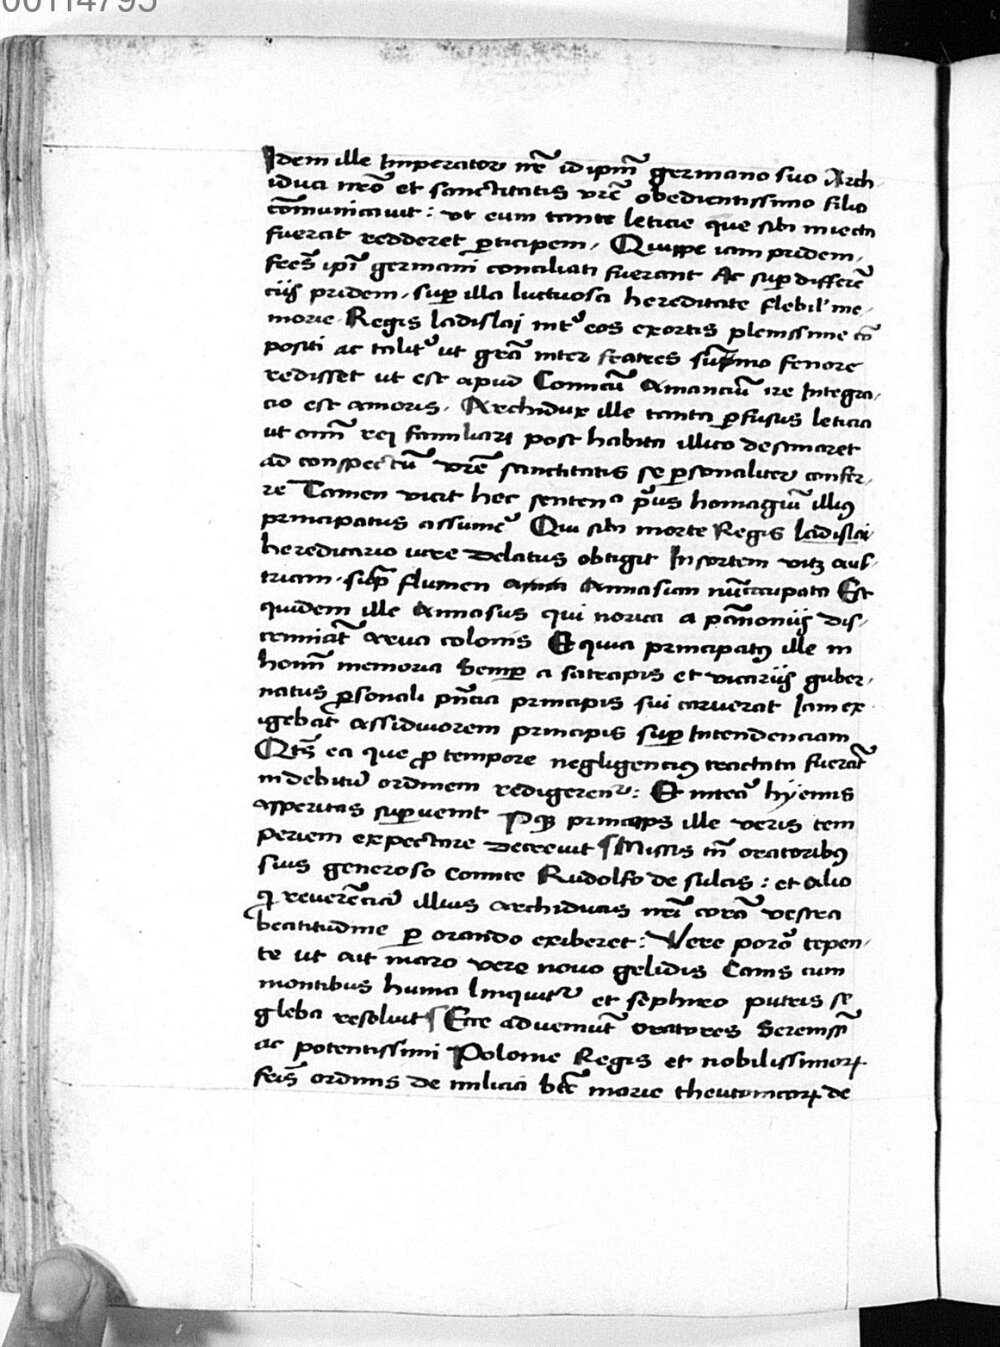 00114795
Idem ille Imperator nr̃ id ipm̃ germano suo Arch-
iduci nr̃o et sanctitatis vr̃e obedientissimo filio
com̃unicauit : vt eum tante leticie que sibi iniecta
fuerat redderet ꝑticipem / Quippe iam pridem /
fr̃es ip̃i germani conciliati fuerant Ac suꝑ differẽ
ciis pridem / suꝑ illa luctuosa hereditate flebil' me-
morie Regis ladislai int' eos exortis plenissime cõ
positi ac talit' ut gr̃a inter fratres sum̃o fenore
redisset ut est apud Comicũ Amanciũ ire Integra-
cio est amoris / Archidux ille tanta ꝑfusus leticia
ut om̃i rei familiari post habita illico destinaret
ad conspectũ vr̃e sanctitatis se ꝑsonaliter confer-
re Tamen vicit hec sentena pͥus homagiũ illiꝰ
principatus assume' Qui sibi morte Regis ladislai
hereditario iure delatus obtigit In sortem vitꝫ aus-
triam / supͣ flumen Annasum nũccupata Est
quidem ille Annasus qui norica a pãnoniis dis-
terminat̃ arua colonis Et quia principatꝰ ille in
hoim̃ memoria Semꝑ a satrapis et vicariis guber-
natus ꝑsonali pñcia principis sui caruerat Iam ex
igebat assiduiorem principis suꝑ Intendenciam
Qten̄s ea que ꝓ tempore negligenciꝰ tractata fuerãt
in debitũ ordinem redigerent' : Et intea' hyemis
asperitas suꝑuenit princeps ille veris tem
periem expectare decreuit Missis tñ oratoribꝰ
suis generoso Comite Rudolfo de sulcis : et alio
q̇ reuerẽciã illius archiducis nr̃i corã vestra
beatitudine ꝑ orando exiberet : Vere poro' repen-
te ut ait maro vere nouo gelidis Canis cum
montibus humᷓ linquit' et sephiro putris se
gleba resoluit Ecce adueniũt oratores Sereniss̃i
ac potentissimi Polonie Regis et nobilissimoꝝ
fr̃is ordinis de milicia bt̃e marie theutonicoꝝ de